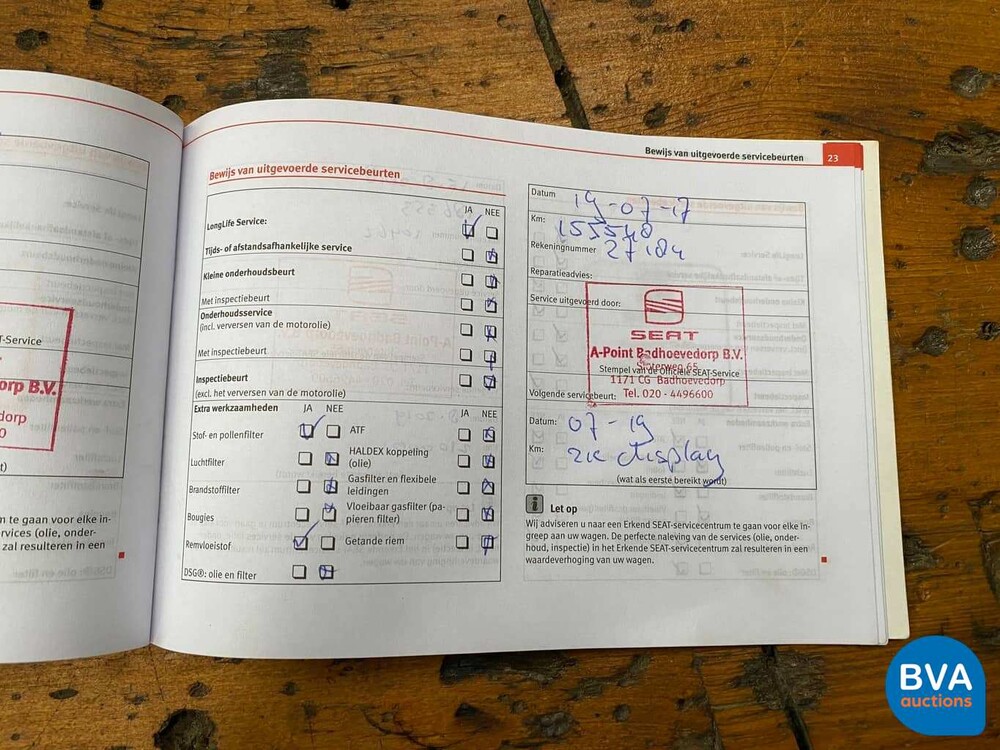 Bewijs van uitgevoerde servicebeurten 23
Bewijs van uitgevoerde servicebeurten
JA NEE
LongLife Service:
Tijds- of afstandsafhankelijke service
Kleine onderhoudsbeurt
Met inspectiebeurt
Onderhoudsservice
(incl. verversen van de motorolie)
Met inspectiebeurt
Inspectiebeurt
(excl. het verversen van de motorolie)
Extra werkzaamheden JA NEE JA NEE
Stof- en pollenfilter ATF
Luchtfilter HALDEX koppeling
(olie)
Brandstoffilter Gasfilter en flexibele
leidingen
Bougies Vloeibaar gasfilter (pa-
pieren filter)
Remvloeistof Getande riem
DSG®: olie en filter
Datum 19-07-17
Km: 155548
Rekeningnummer 27184
Reparatieadvies:
Service uitgevoerd door:
SEAT
A-Point Badhoevedorp B.V.
Sloterweg 65
Stempel van de Officiële SEAT-Service
1171 CG Badhoevedorp
Tel. 020 - 4496600
Volgende servicebeurt:
Datum: 07-19
Km: zie display
(wat als eerste bereikt wordt)
i Let op
Wij adviseren u naar een Erkend SEAT-servicecentrum te gaan voor elke in-
greep aan uw wagen. De perfecte naleving van de services (olie, onder-
houd, inspectie) in het Erkende SEAT-servicecentrum zal resulteren in een
waardeverhoging van uw wagen.
T-Service
orp B.V.
dorp
0
t)
m te gaan voor elke in-
rvices (olie, onder-
zal resulteren in een
BVA
auctions